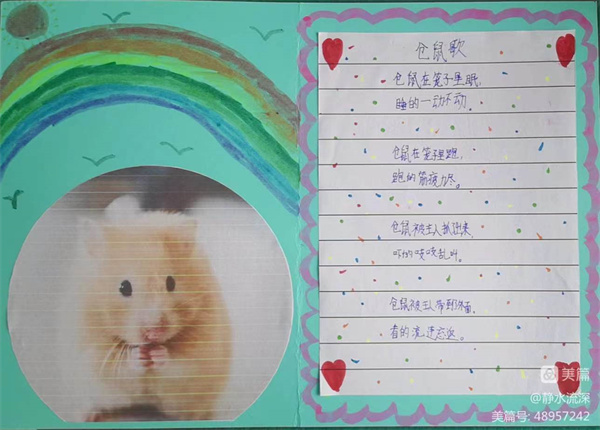 仓鼠歌
仓鼠在笼子里眠,
睡的一动不动。
仓鼠在笼里跑,
跑的筋疲力尽。
仓鼠被主人抓起来,
吓的吱吱乱叫。
仓鼠被主人带到外面,
看的流连忘返。
美篇
@静水流深
美篇号: 48957242